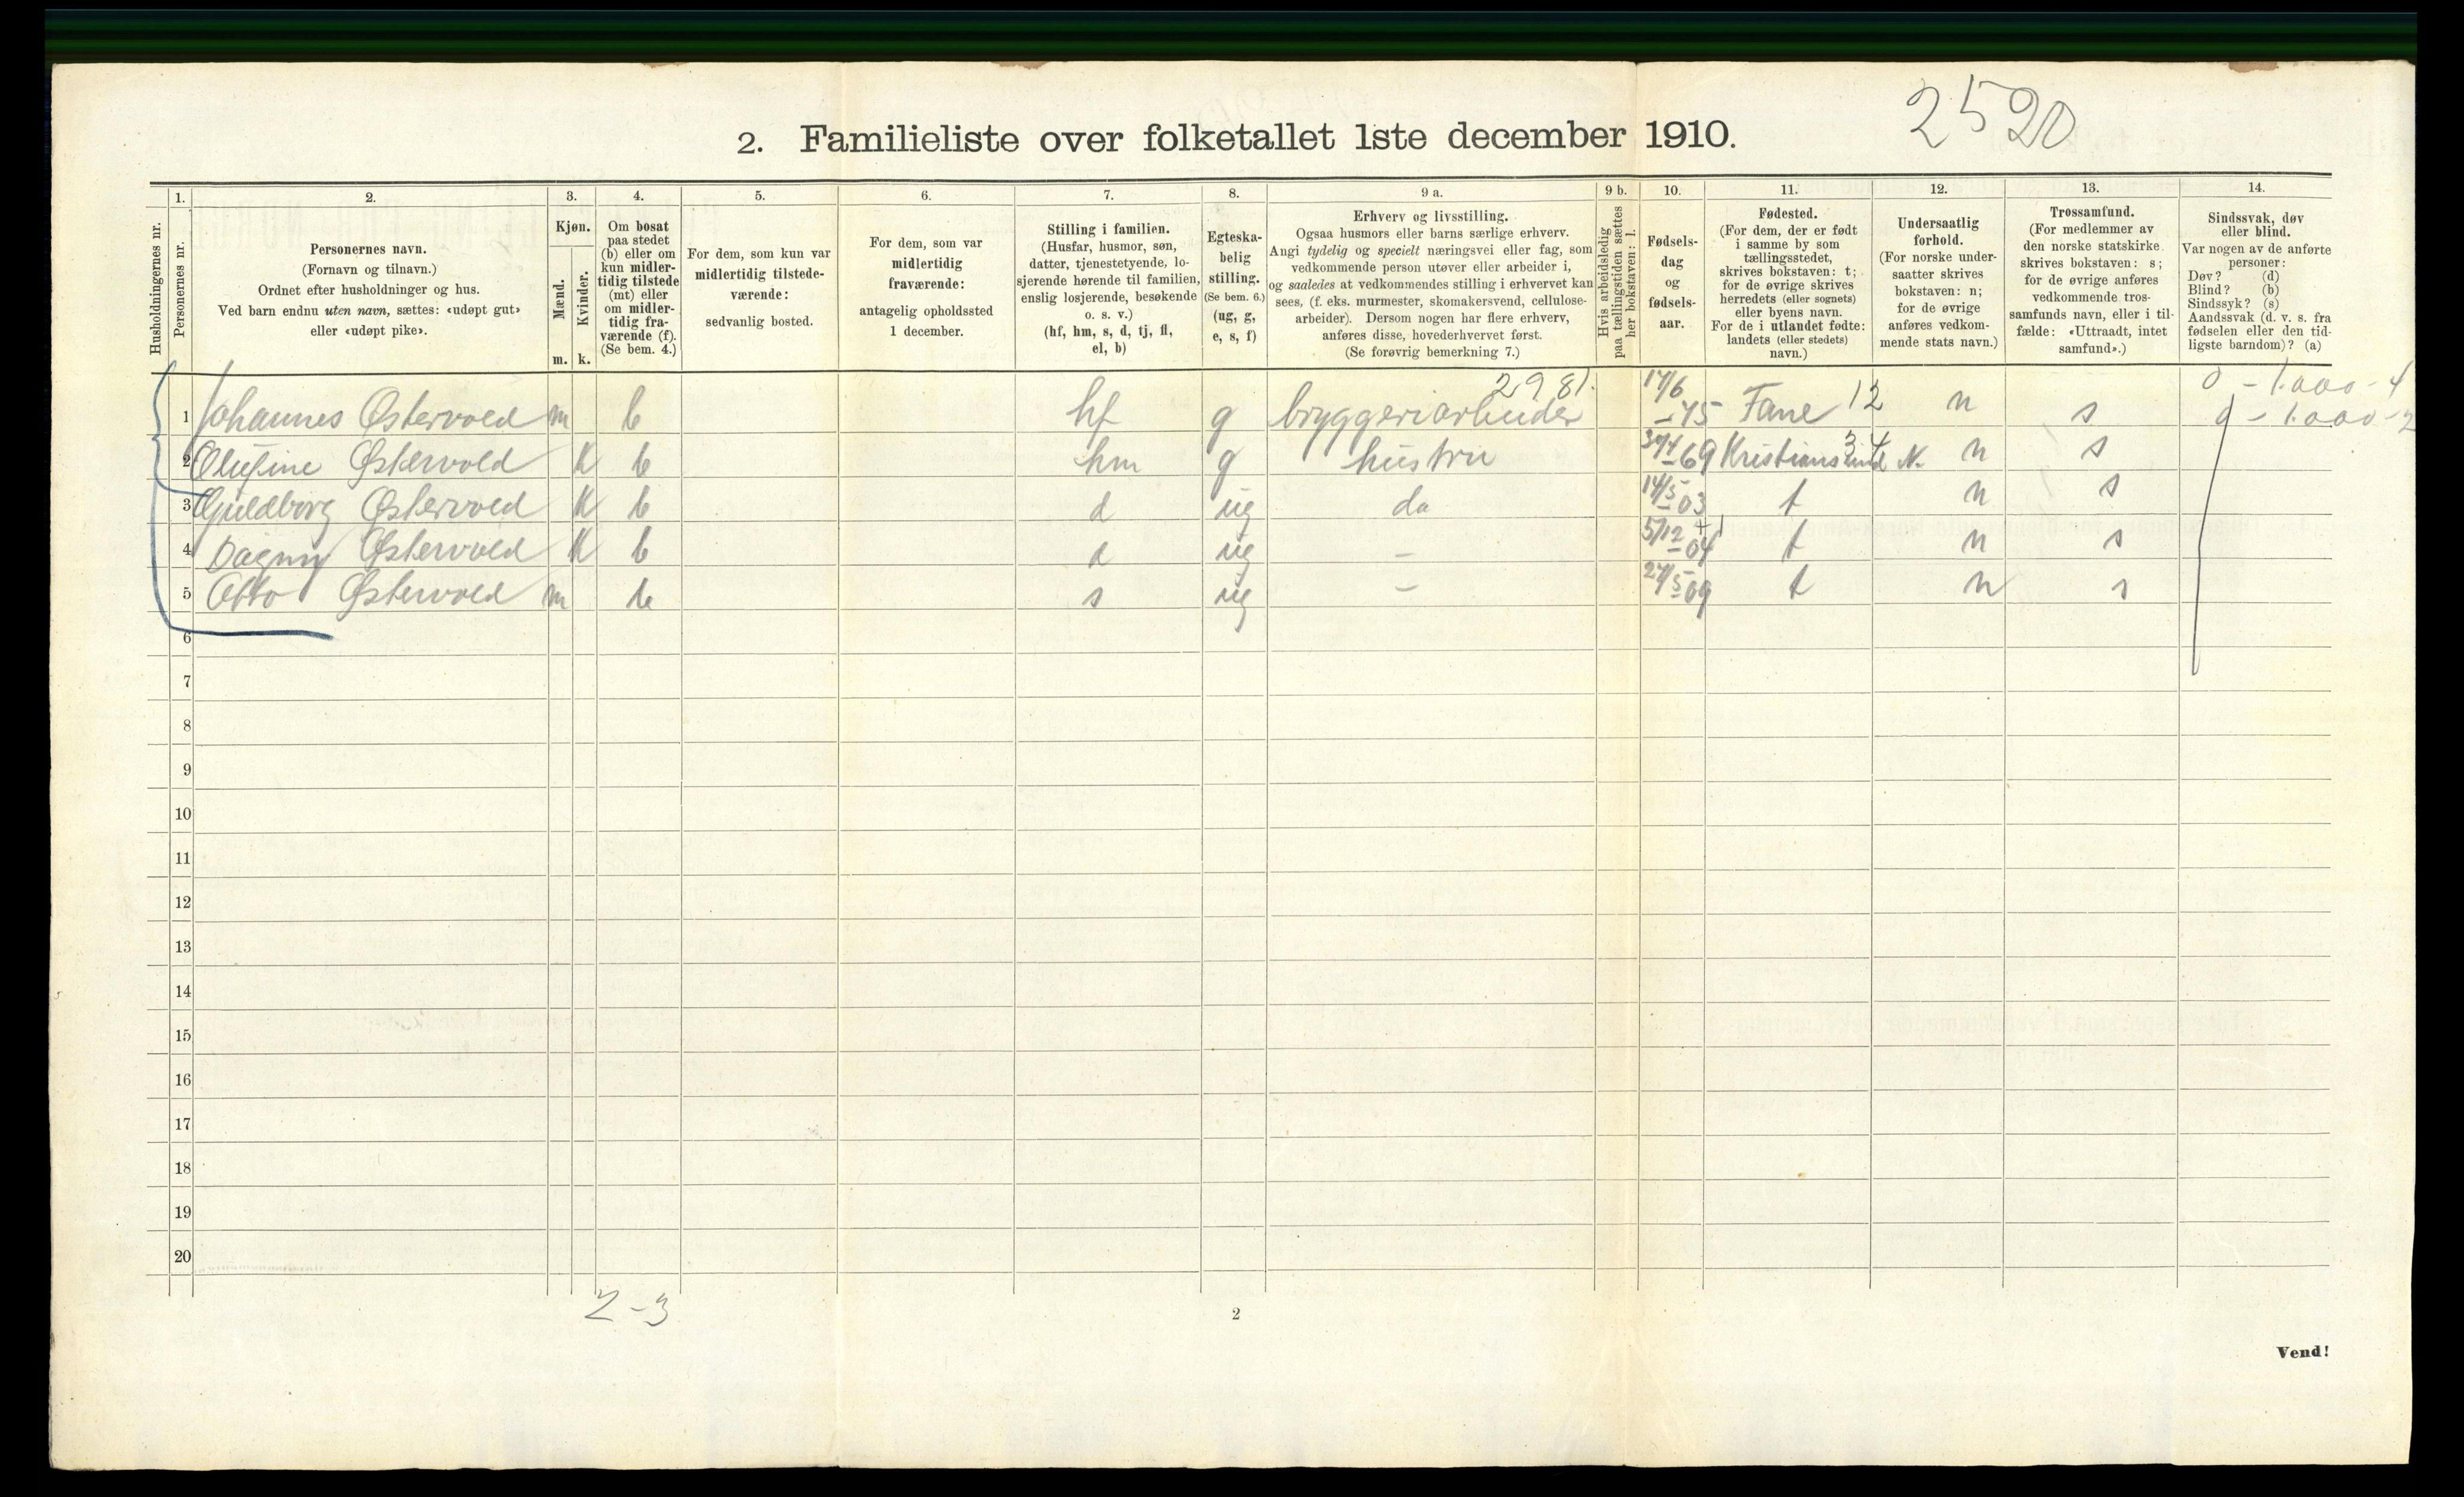 2520
2. Familieliste over folketallet 1ste december 1910.
Husholdningernes nr.
1. Personernes nr.
2. Personernes navn. (Fornavn og tilnavn.) Ordnet efter husholdninger og hus. Ved barn endnu uten navn, sættes: «udøpt gut» eller «udøpt pike».
3. Kjøn. Mænd. m. Kvinder. k.
4. Om bosat paa stedet (b) eller om kun midlertidig tilstede (mt) eller om midlertidig fraværende (f). (Se bem. 4.)
5. For dem, som kun var midlertidig tilstedeværende: sedvanlig bosted.
6. For dem, som var midlertidig fraværende: antagelig opholdssted 1 december.
7. Stilling i familien. (Husfar, husmor, søn, datter, tjenestetyende, losjerende hørende til familien, enslig losjerende, besøkende o. s. v.) (hf, hm, s, d, tj, fl, el, b)
8. Egteskabelig stilling. (Se bem. 6.) (ug, g, e, s, f)
9 a. Erhverv og livsstilling. Ogsaa husmors eller barns særlige erhverv. Angi tydelig og specielt næringsvei eller fag, som vedkommende person utøver eller arbeider i, og saaledes at vedkommendes stilling i erhvervet kan sees, (f. eks. murmester, skomakersvend, cellulosearbeider). Dersom nogen har flere erhverv, anføres disse, hovederhvervet først. (Se forøvrig bemerkning 7.)
9 b. Hvis arbeidsledig paa tællingstiden sættes her bokstaven: l.
10. Fødselsdag og fødselsaar.
11. Fødested. (For dem, der er født i samme by som tællingsstedet, skrives bokstaven: t; for de øvrige skrives herredets (eller sognets) eller byens navn. For de i utlandet fødte: landets (eller stedets) navn.)
12. Undersaatlig forhold. (For norske undersaatter skrives bokstaven: n; for de øvrige anføres vedkommende stats navn.)
13. Trossamfund. (For medlemmer av den norske statskirke skrives bokstaven: s; for de øvrige anføres vedkommende trossamfunds navn, eller i tilfælde: «Uttraadt, intet samfund».)
14. Sindssvak, døv eller blind. Var nogen av de anførte personer: Døv? (d) Blind? (b) Sindssyk? (s) Aandssvak (d. v. s. fra fødselen eller den tidligste barndom)? (a)
2981. 0 - 1.000 - 4
1 Johannes Østervold m b hf g bryggeriarbeider 17/6 -75 Fane 12 n s 0 - 1.000 - 2
2 Olufine Østervold K b hm g hustru 30/4 -69 Kristiansund N. 34 n s
3 Guldborg Østervold K b d ug da 14/5 -03 t n s
4 Dagny Østervold K b d ug - 5/12 -04 t n s
5 Otto Østervold m b s ug - 27/5 09 t n s
6
7
8
9
10
11
12
13
14
15
16
17
18
19
20
2-3
2
Vend!